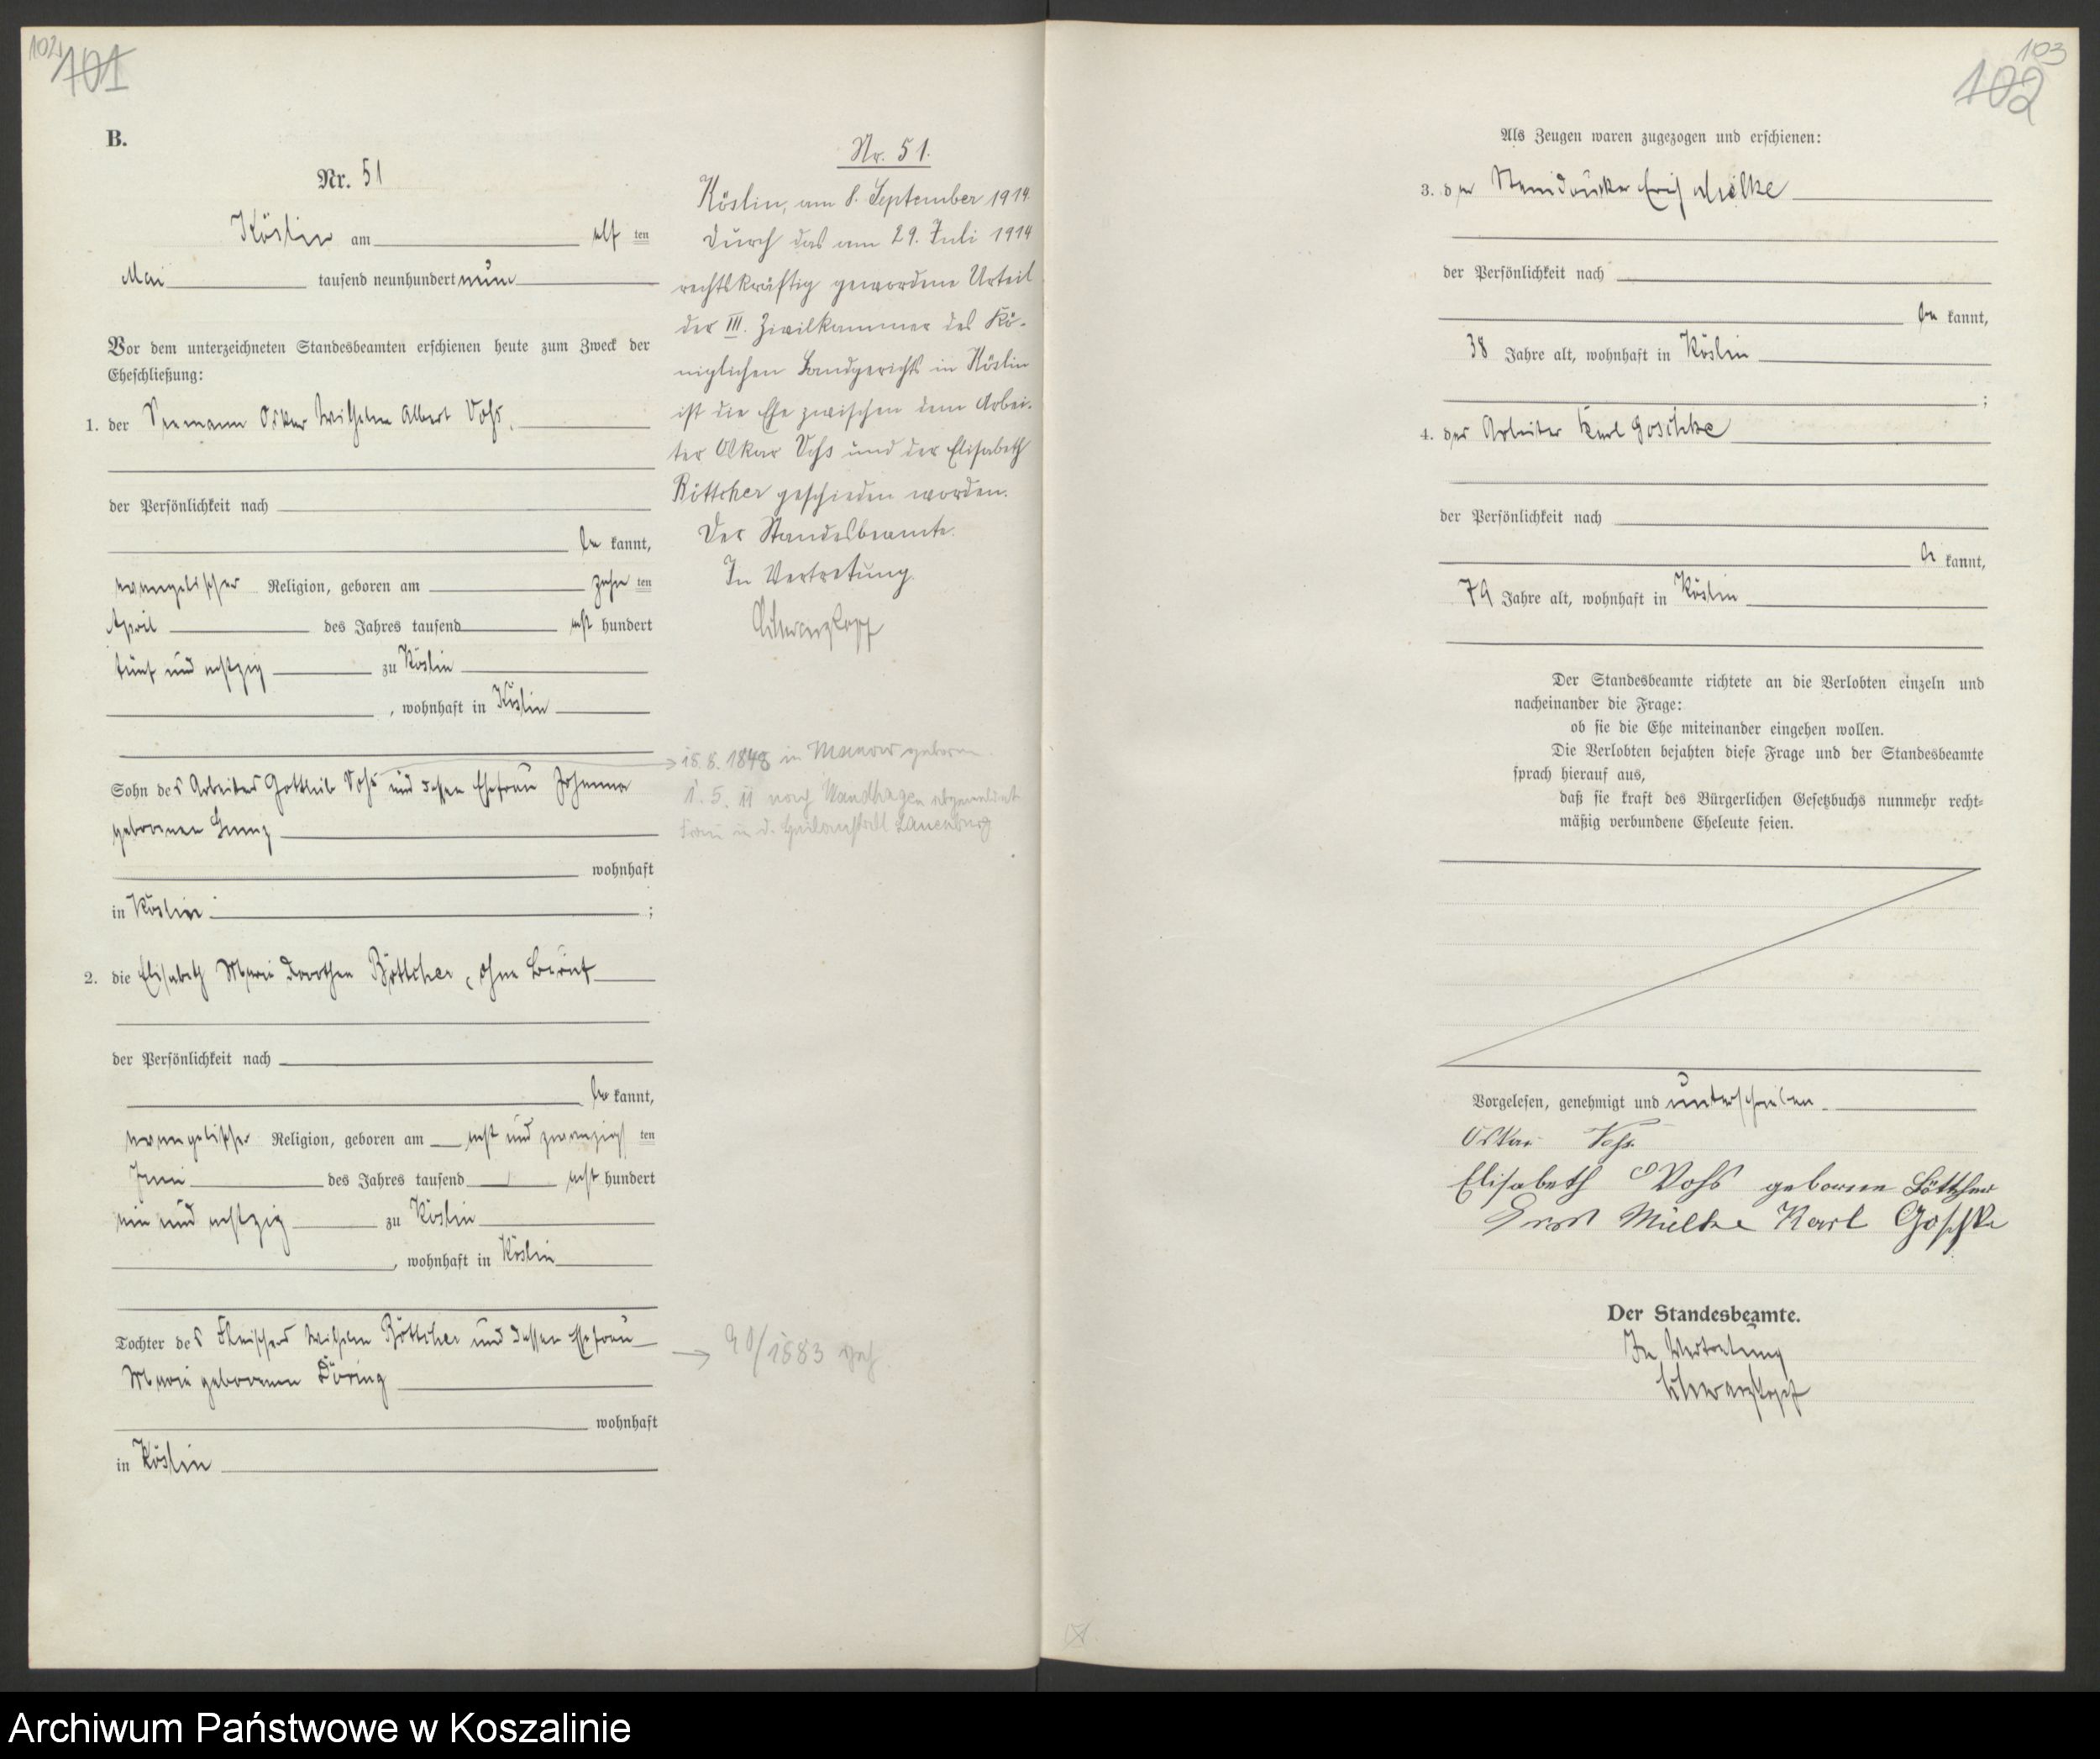 102
101
B.
Nr. 51
Köslin am elf ten
Mai tausend neunhundert neun
Vor dem unterzeichneten Standesbeamten erschienen heute zum Zweck der
Eheschließung:
1. der Seemann Oskar Wilhelm Albert Vohs,
der Persönlichkeit nach
be kannt,
evangelischer Religion, geboren am zehn ten
April des Jahres tausend acht hundert
fünf und achtzig zu Köslin
, wohnhaft in Köslin
Sohn des Arbeiters Gottlieb Vohs und dessen Ehefrau Johanna
geborenen
wohnhaft
in Köslin ;
2. die Elisabeth Marie Dorothea Böttcher, ohne Beruf
der Persönlichkeit nach
be kannt,
evangelischer Religion, geboren am acht und zwanzigs ten
Juni des Jahres tausend acht hundert
ein und achtzig zu Köslin
, wohnhaft in Köslin
Tochter des Fleischers Wilhelm Böttcher und dessen Ehefrau
Marie geborenen Döring
wohnhaft
in Köslin
Nr. 51.
Köslin, am 8. September 1914.
Durch das am 29. Juli 1914
rechtskräftig gewordene Urteil
der III. Zivilkammer des Kö-
niglichen Landgerichts in Köslin
ist die Ehe zwischen dem Arbei-
ter Oskar Vohs und der Elisabeth
Böttcher geschieden worden.
Der Standesbeamte.
In Vertretung.
Schwarzkopf
1848 in Manow geboren.
1. 5. 11 nach Wandhagen abgemeldet
Frau in d. Heilanstalt Lauenburg
1883
103
102
Als Zeugen waren zugezogen und erschienen:
3. der Steindrucker Mielke
der Persönlichkeit nach
be kannt,
38 Jahre alt, wohnhaft in Köslin
;
4. der Arbeiter Karl Goschke
der Persönlichkeit nach
be kannt,
79 Jahre alt, wohnhaft in Köslin
Der Standesbeamte richtete an die Verlobten einzeln und
nacheinander die Frage:
ob sie die Ehe miteinander eingehen wollen.
Die Verlobten bejahten diese Frage und der Standesbeamte
sprach hierauf aus,
daß sie kraft des Bürgerlichen Gesetzbuchs nunmehr recht-
mäßig verbundene Eheleute seien.
Vorgelesen, genehmigt und unterschrieben.
Oskar Vohs.
Elisabeth Vohs geborene Böttcher
Mielke Karl Goschke
Der Standesbeamte.
In Vertretung
Schwarzkopf
Archiwum Państwowe w Koszalinie